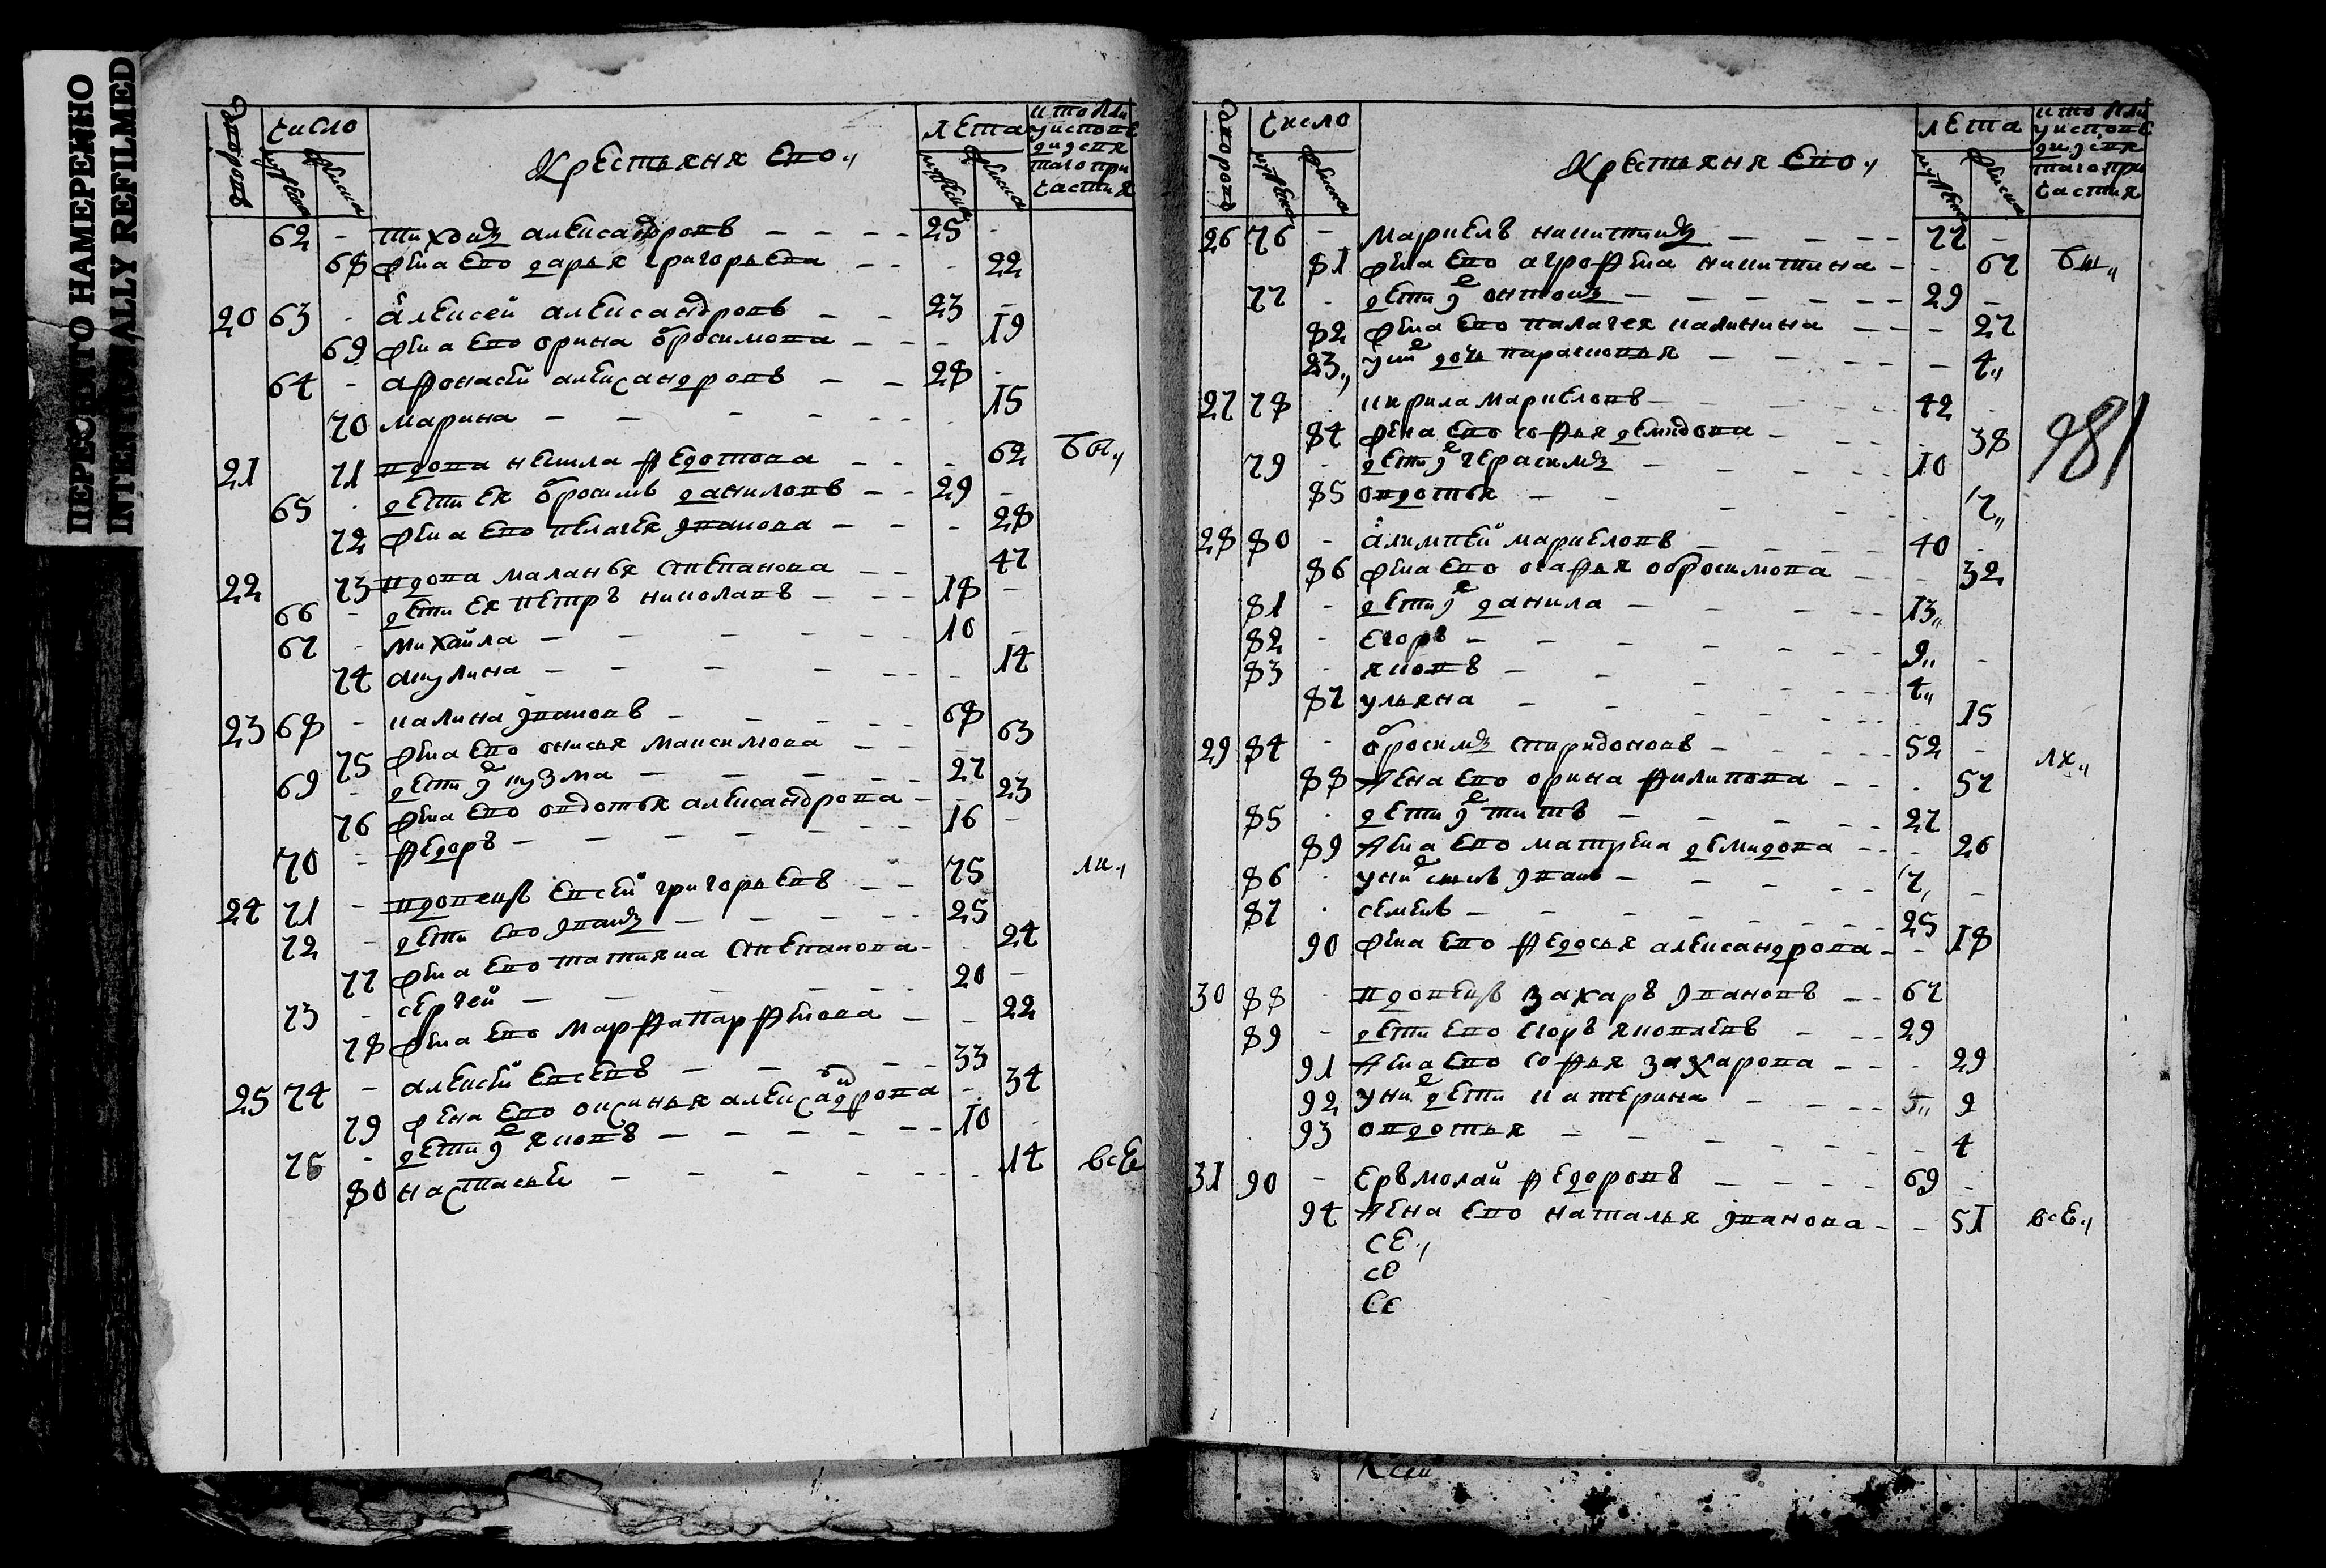 ПЕРЕСНЯТО НАМЕРЕННО
INTENTIONALLY REFILMED
дворовъ число крестьяня ево лета
мужска женска мужска женска
62 - тихонъ александровъ - - - - 25 -
68 жена ево дарья григорьева - - - 22
20 63 - алексей александровъ - - 23 -
69 жена ево орина обросимова - - - 19
64 - афонасей александровъ - - 28 -
70 марина - - - - - 15
21 71 вдова некила федотова - - - 62 бы,,
65 - дети ея обросимъ даниловъ - - 29 -
72 жена ево пелагея иванова - - - 28
22 73 вдова маланья степанова - - 47
66 - дети ея петръ николавъ - - - 18 -
67 - михайла - - - - - - 10 -
74 акулина - - - - - - 14
23 68 - калина ивановъ - - - - - 68
75 жена ево онисья максимова - - - 63
69 - дети ие кузма - - - - - 27
76 жена ево овдотья александрова - - 23
70 - федоръ - - - - - - - 16 -
24 71 - вдовецъ евсей григорьевъ - - 75 лк,,
72 - дети ево иванъ - - - - - 25
77 жена ево татияна степанова - - 24
73 - сергей - - - - - - 20 -
78 жена ево марфа парфенова - - 22
25 74 - алексей евсевъ - - - - 33
79 жена ево оксинья александрова - 34
75 - дети ие яковъ - - - - - - 10 -
80 настасья - - - - - - 14 всѣ
дворовъ число крестьяня ево,, лета
мужска женска мужска женска
981
26 76 - маркелъ никитинъ - - - - 77 -
81 жена ево агрофена никитина - - 67 бы,,
77 - дети ие онтонъ - - - - - - 29 -
82 жена ево палагея калинина - - - 27
83,, ухъ дочь парасковья - - - - 4,,
27 78 - кирила маркеловъ - - - - 42 -
84 жена ево софья демидова - - - - 38
79 - дети ие герасимъ - - - - 10
85 овдотья - - - - - - 7,,
28 80 - алимпей маркеловъ - - - - 40 -
86 жена ево огафья обросимова - - - 32
81 - дети ие данила - - - - - 13,,
82 - егоръ - - - - - - - 9,,
83 - яковъ - - - - - - - 4,, -
87 ульяна - - - - - - - 15
29 84 - обросимъ спиридоновъ - - - - - 52 -
88 жена ево орина филипова - - - 57 лх,,
85 - дети ие титъ - - - - - - 27
89 жена ево матрена демидова - - - 26
86 - унихъ сынъ иванъ - - - - - 7, -
87 - семенъ - - - - - - - 25
90 жена ево федосья александрова - - 18
30 88 - вдовецъ захаръ ивановъ - - 67
89 - дети ево егоръ яковлевъ - - 29
91 жена ево софья захарова - - - 29
92 унихъ дети катерина - - - - 9
93 овдотья - - - - - - - 4
31 90 - ерьмолай федоровъ - - - - 69 -
94 жена ево наталья иванова - - 51 всѣ,,
се,,
се
се